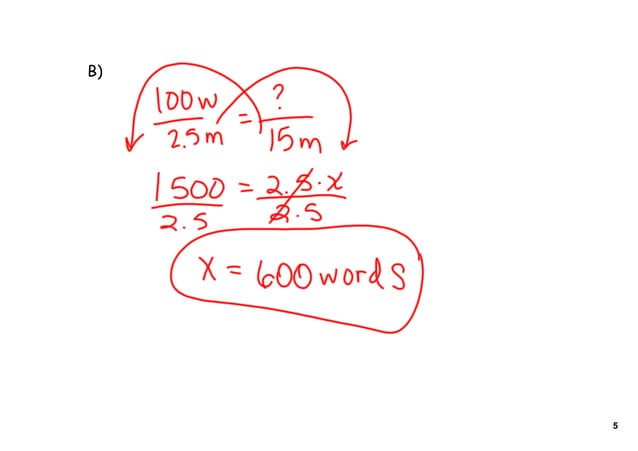 B)
100w = ?
2.5m 15m
1500 = 2.5·x
2.5 2.5
x = 600 words
5